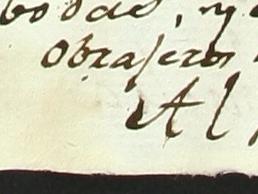 bodas, y
obrajeros
Al